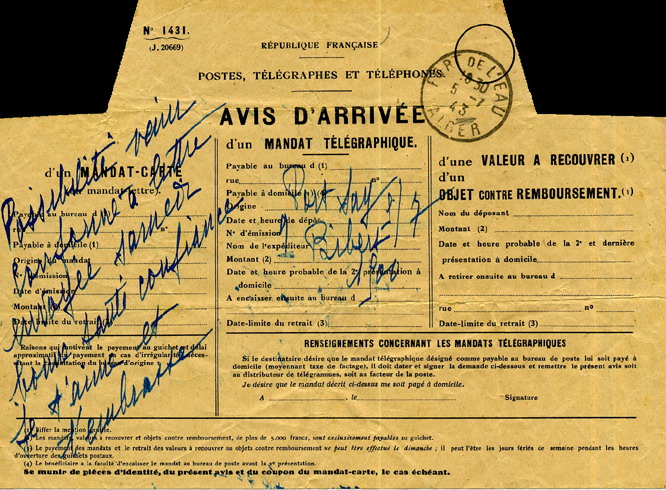 N° 1431.
(J. 20669)
RÉPUBLIQUE FRANÇAISE
POSTES, TÉLÉGRAPHES ET TÉLÉPHONES.
FORT DE L'EAU
18 30
5 -7
43
ALGER
AVIS D'ARRIVÉE
d'un MANDAT-CARTE
mandat-lettre)
Payable au bureau d
rue
Payable à domicile (1)
Origine du mandat
N° d'émission
Date d'émission
Montant
Date-limite du retrait (3)
Raisons qui motivent le payement au guichet et délai
approximatif du payement en cas d'irrégularité néces-
sitant la consultation du bureau d'origine
Possibilité venir
conforme à lettre
envoyée samedi
bonne santé confiance
Je t'aime et
t'embrasse
d'un MANDAT TÉLÉGRAPHIQUE.
Payable au bureau d (1)
rue n°
Payable à domicile (1)
Origine Port Say
Date et heure de dépôt 5/7
N° d'émission
Nom de l'expéditeur
Montant (2)
Date et heure probable de la 2e présentation à
domicile
A encaisser ensuite au bureau d
Date-limite du retrait (3)
d'une VALEUR A RECOUVRER (1)
d'un
OBJET CONTRE REMBOURSEMENT. (1)
Nom du déposant
Montant (2)
Date et heure probable de la 2e et dernière
présentation à domicile
A retirer ensuite au bureau d
rue n°
Date-limite du retrait (3)
RENSEIGNEMENTS CONCERNANT LES MANDATS TÉLÉGRAPHIQUES
Si le destinataire désire que le mandat télégraphique désigné comme payable au bureau de poste lui soit payé à
domicile (moyennant taxe de factage), il doit dater et signer la demande ci-dessous et remettre le présent avis soit
au distributeur de télégrammes, soit au facteur de la poste.
Je désire que le mandat décrit ci-dessus me soit payé à domicile.
A , le Signature
(1) Biffer la mention inutile.
(2) Les mandats, valeurs à recouvrer et objets contre remboursement, de plus de 5.000 francs, sont exclusivement payables au guichet.
(3) Le payement des mandats et le retrait des valeurs à recouvrer ou objets contre remboursement ne peut être effectué le dimanche ; il peut l'être les jours fériés de semaine pendant les heures
d'ouverture des guichets postaux.
(4) Le bénéficiaire a la faculté d'encaisser le mandat au bureau de poste avant la 2e présentation.
Se munir de pièces d'identité, du présent avis et du coupon du mandat-carte, le cas échéant.